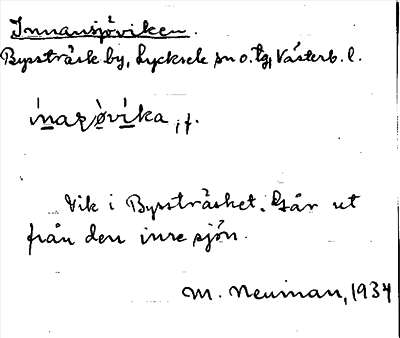 Innansjöviken.
Bysträsk by, Lycksele sn o. tg, Västerb. l.
f.
Vik i Byssträsket. Går ut
från den inre sjön.
M. Neuman, 1934